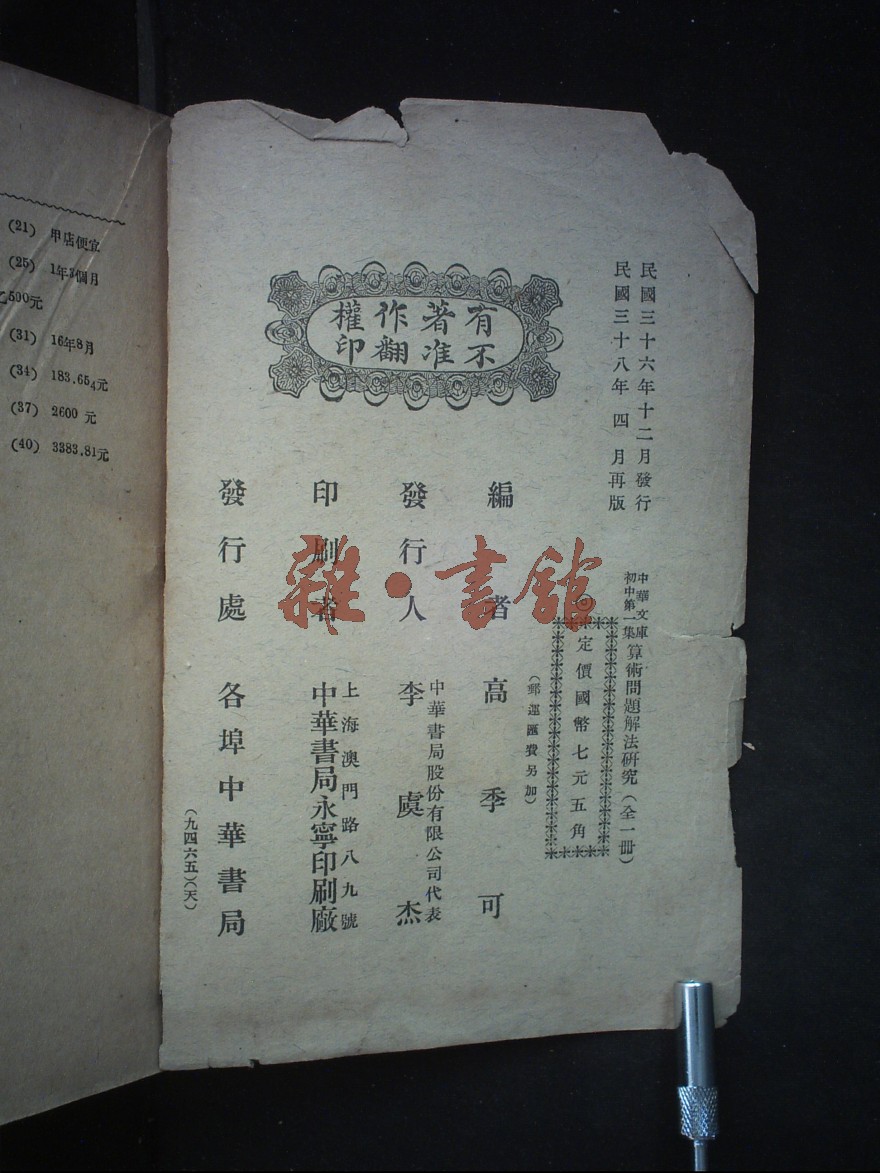 民國三十六年十二月發行
民國三十八年四月再版
中華文庫
初中第一集
算術問題解法研究(全一冊)
◎定價國幣七元五角
(郵運匯費另加)
有著作權
不准翻印
編者 高季可
發行人 李虞杰
中華書局股份有限公司代表
印刷者
上海澳門路八九號
中華書局永寧印刷廠
發行處 各埠中華書局
(九四六五)(天)
雜·書館
(21) 甲店便宜
(25) 1年3個月
乙500元
(31) 16年8月
(34) 183.654元
(37) 2600 元
(40) 3383.81元